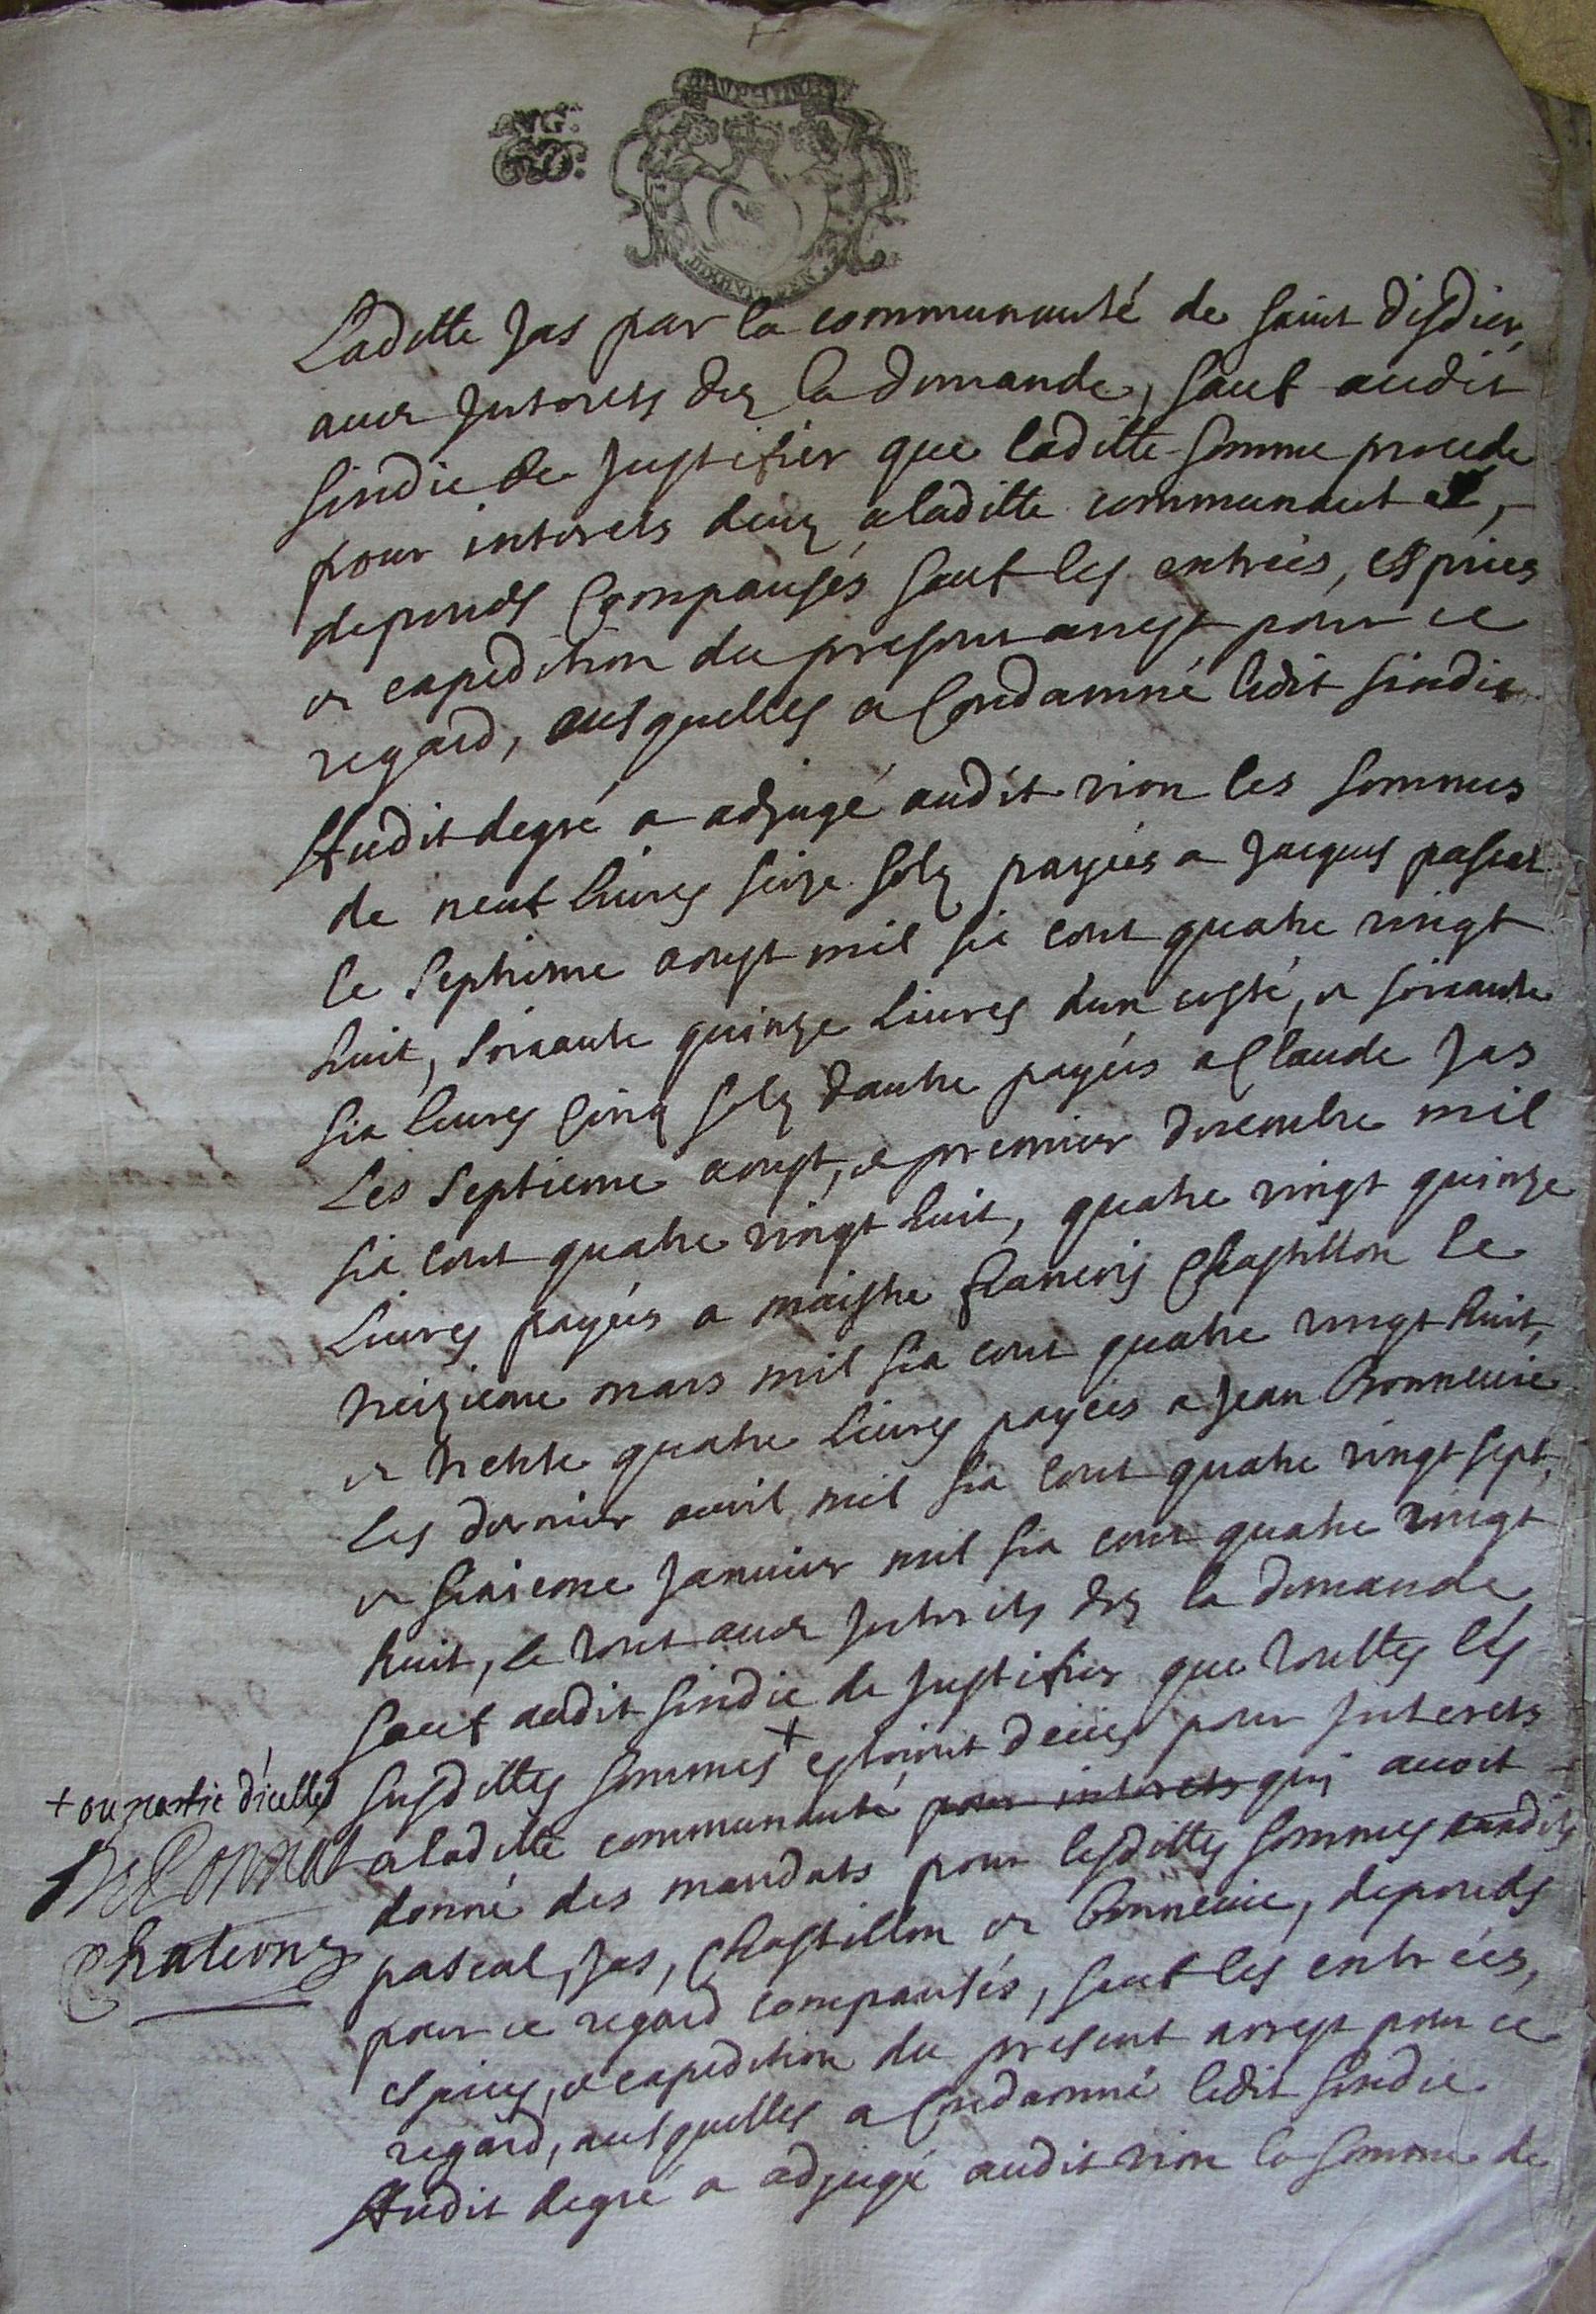 DAUPHINE
Ladille Jas par la communauté de saint disdier,
auec Interets dez la demande, sauf audit
sindic de Justifier que laditte somme procede
pour interets deuz a laditte communauté,
depends compansés sauf les entrées, espices
et expedition du present arrest pour ce
regard, ausquelles a Condamné ledit sindic
Audit degré a adjugé audit rion les sommes
de neuf liures seize solz payées a Jacques pascal
le septieme aoust mil six cent quatre vingt
huit, soixante quinze liures dun costé, et soixante
six liures cinq solz dautre payées a Claude Jas
Les septieme aoust, et premier decembre mil
six cent quatre vingt huit, quatre vingt quinze
Liures payées a maistre francois Chastillon le
treizieme mars mil six cent quatre vingt huit,
et trente quatre liures payées a Jean Bonneuie
les dernier auril mil six cent quatre vingt sept,
et sixieme Januier mil six cent quatre vingt
huit, le tout auec Interets dez la demande
sauf audit sindic de Justifier que touttes les
susdittes sommes + estoient deües pour Interets
+ ou partie d'icelles
a laditte communauté pour interets qui auoit
donné des mandats pour lesdittes sommes ausdits
pascal, Jas, Chastillon et Bonneuie, depends
pour ce regard compansés, sauf les entrées,
espices, et expedition du present arrest pour ce
regard, ausquelles a Condamné ledit sindic
Audit degré a adjugé audit rion la somme de